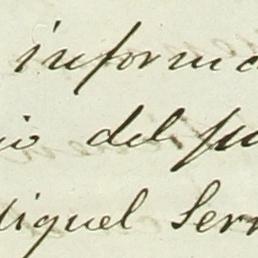 informa
io del ju
Miguel Serr